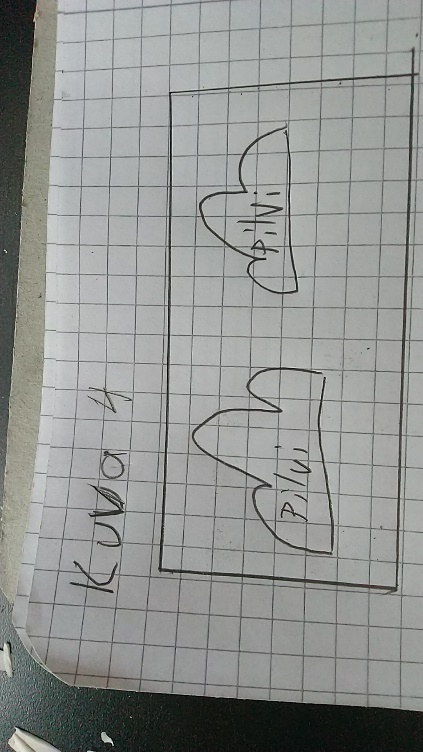 Kuva 4
pilvi
pilvi